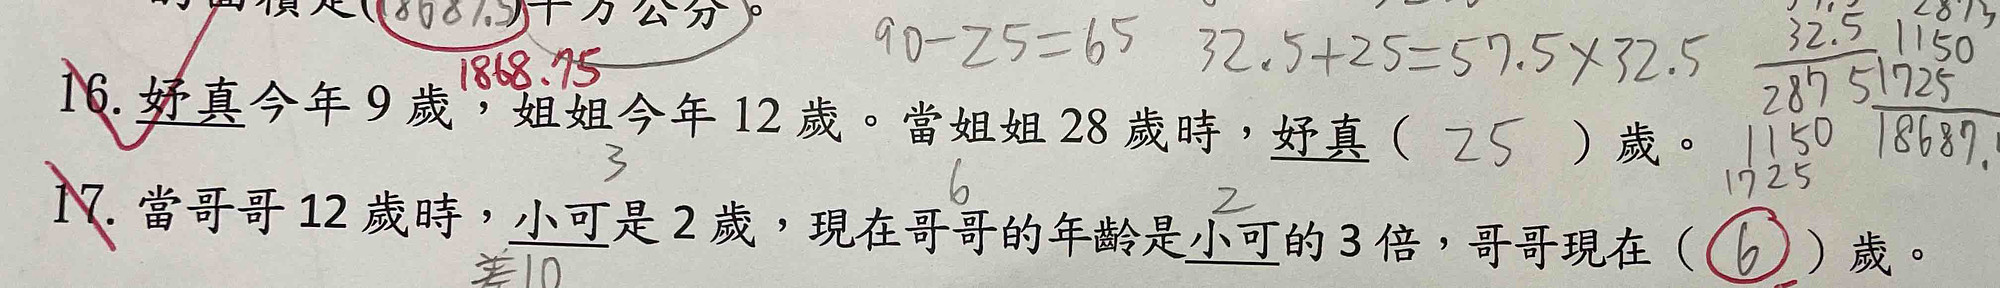 的面積是(18687.5)平方公分。
1868.75
90-25=65 32.5+25=57.5×32.5
32.5
287 5
1150
1725
1150
1725
18687.
16. 妤真今年 9 歲，姐姐今年 12 歲。當姐姐 28 歲時，妤真（ 25 ）歲。
3
6
2
17. 當哥哥 12 歲時，小可是 2 歲，現在哥哥的年齡是小可的 3 倍，哥哥現在（ 6 ）歲。
差10